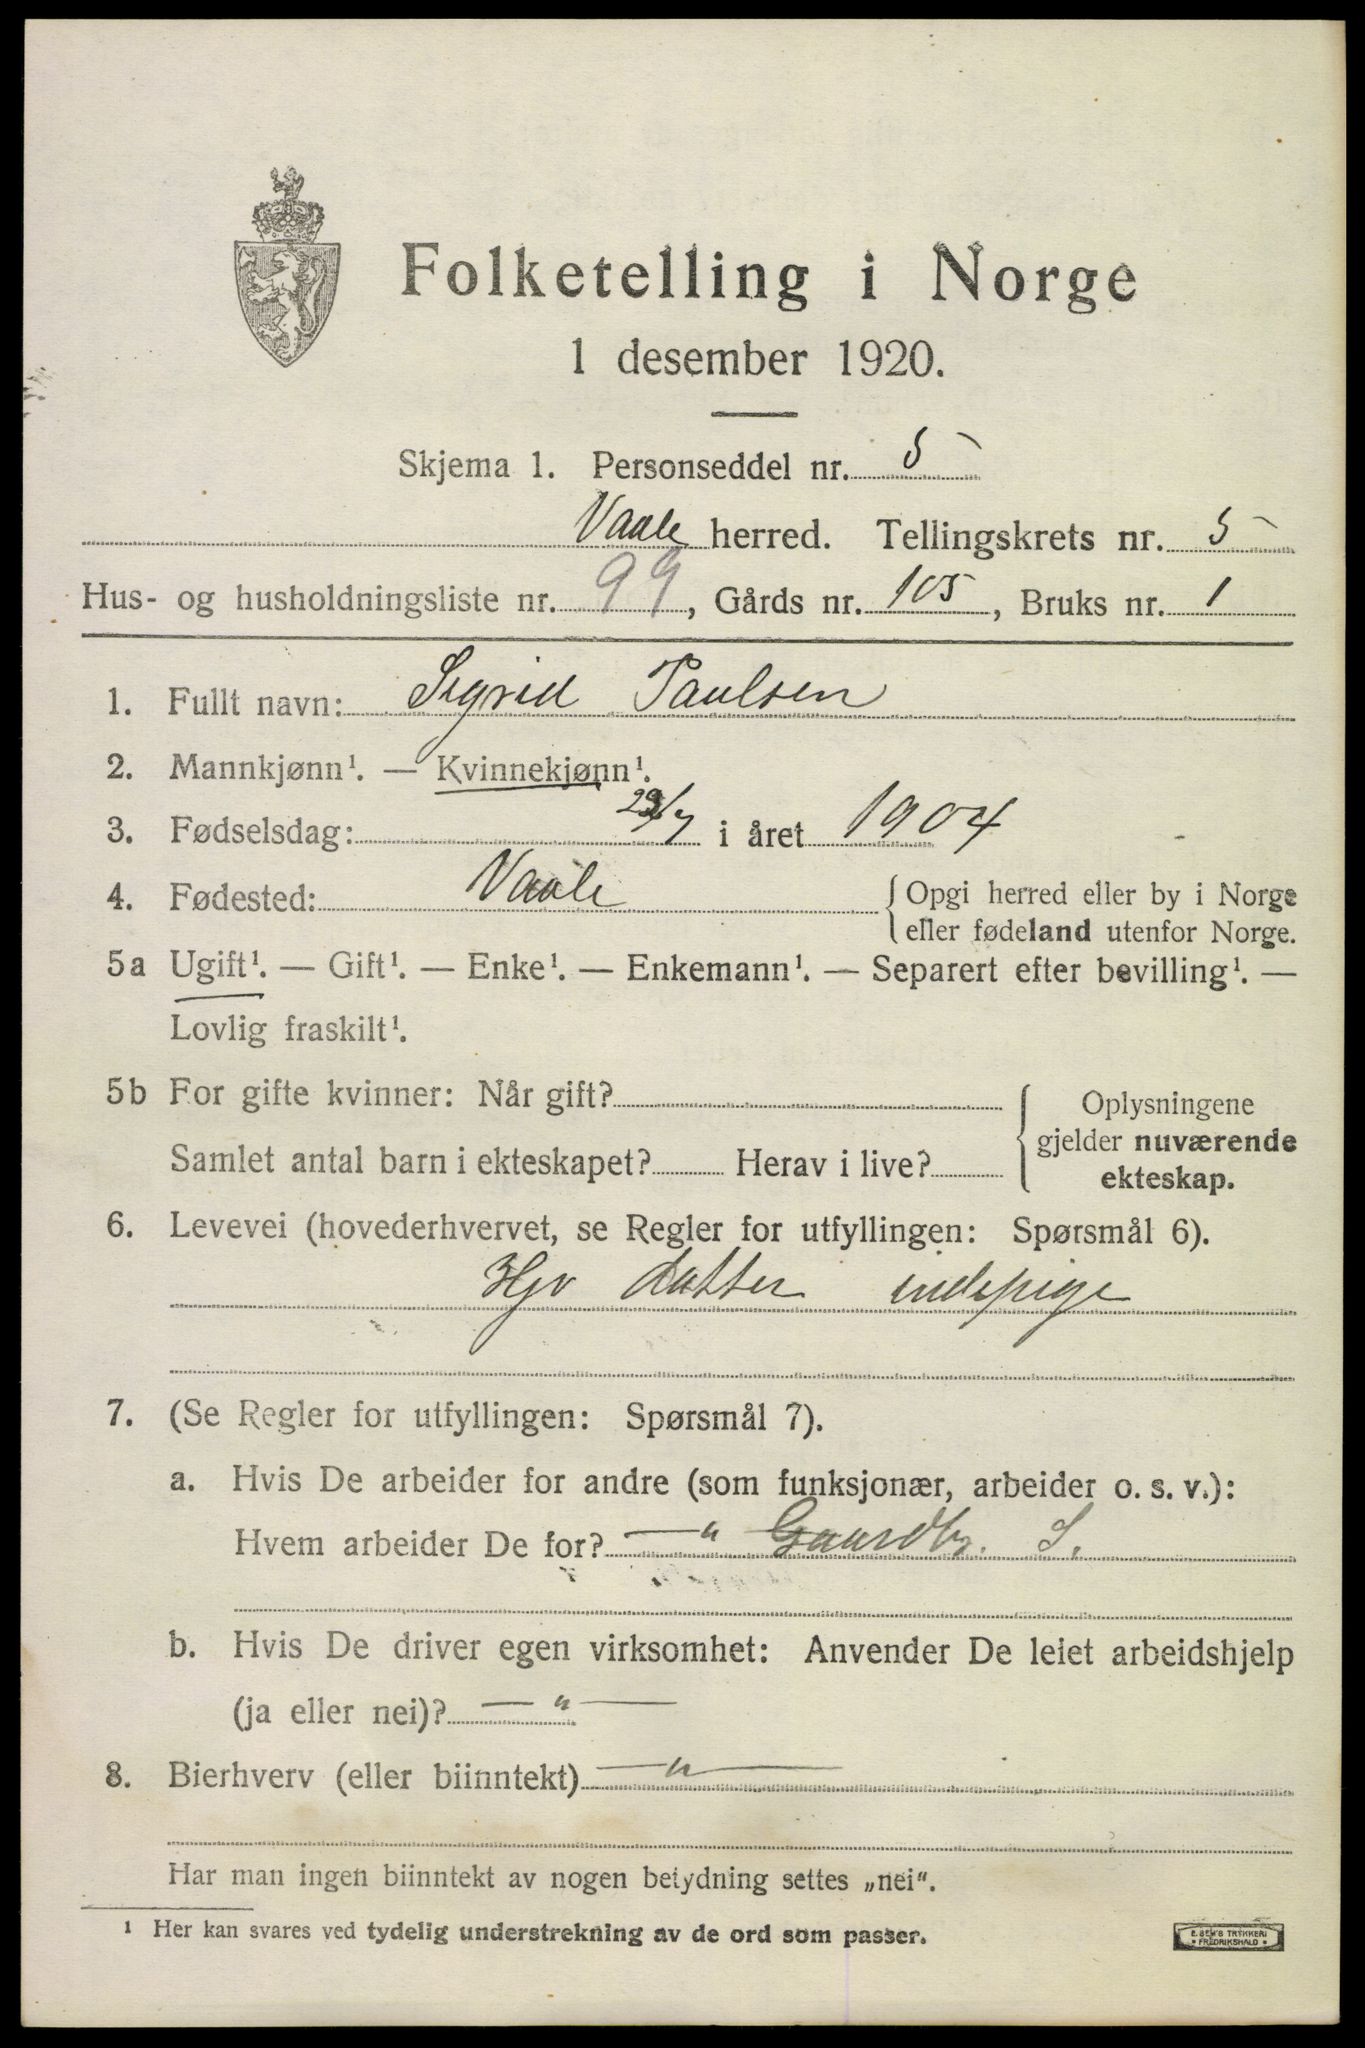 Folketelling i Norge
1 desember 1920.
Skjema 1. Personseddel nr. 5
Vaale herred. Tellingskrets nr. 5
Hus- og husholdningsliste nr. 99, Gårds nr. 105, Bruks nr. 1
1. Fullt navn: Sigrid Paulsen
2. Mannkjønn¹. — Kvinnekjønn¹.
3. Fødselsdag: 29/7 i året 1904
4. Fødested: Vaale {Opgi herred eller by i Norge
eller fødeland utenfor Norge.
5a Ugift¹. — Gift¹. — Enke¹. — Enkemann¹. — Separert efter bevilling¹. —
Lovlig fraskilt¹.
5b For gifte kvinner: Når gift? { Oplysningene
gjelder nuværende
Samlet antal barn i ekteskapet? Herav i live?
ekteskap.
6. Levevei (hovederhvervet, se Regler for utfyllingen: Spørsmål 6).
Hjv datter indepige
7. (Se Regler for utfyllingen: Spørsmål 7).
a. Hvis De arbeider for andre (som funksjonær, arbeider o. s. v.):
Hvem arbeider De for? — " Gaardbr. S.
b. Hvis De driver egen virksomhet: Anvender De leiet arbeidshjelp
(ja eller nei)? — " —
8. Bierhverv (eller biinntekt) — " —
Har man ingen biinntekt av nogen betydning settes „nei".
¹ Her kan svares ved tydelig understrekning av de ord som passer.
E. SEM'S TRYKKERI
• FREDRIKSHALD •